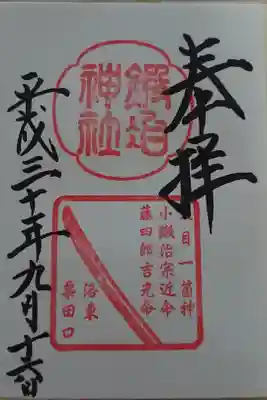 奉拝
鍛冶
神社
天目一箇神
小鍛治宗近命
藤四郎吉光命
洛東
粟田口
平成三十年九月十六日